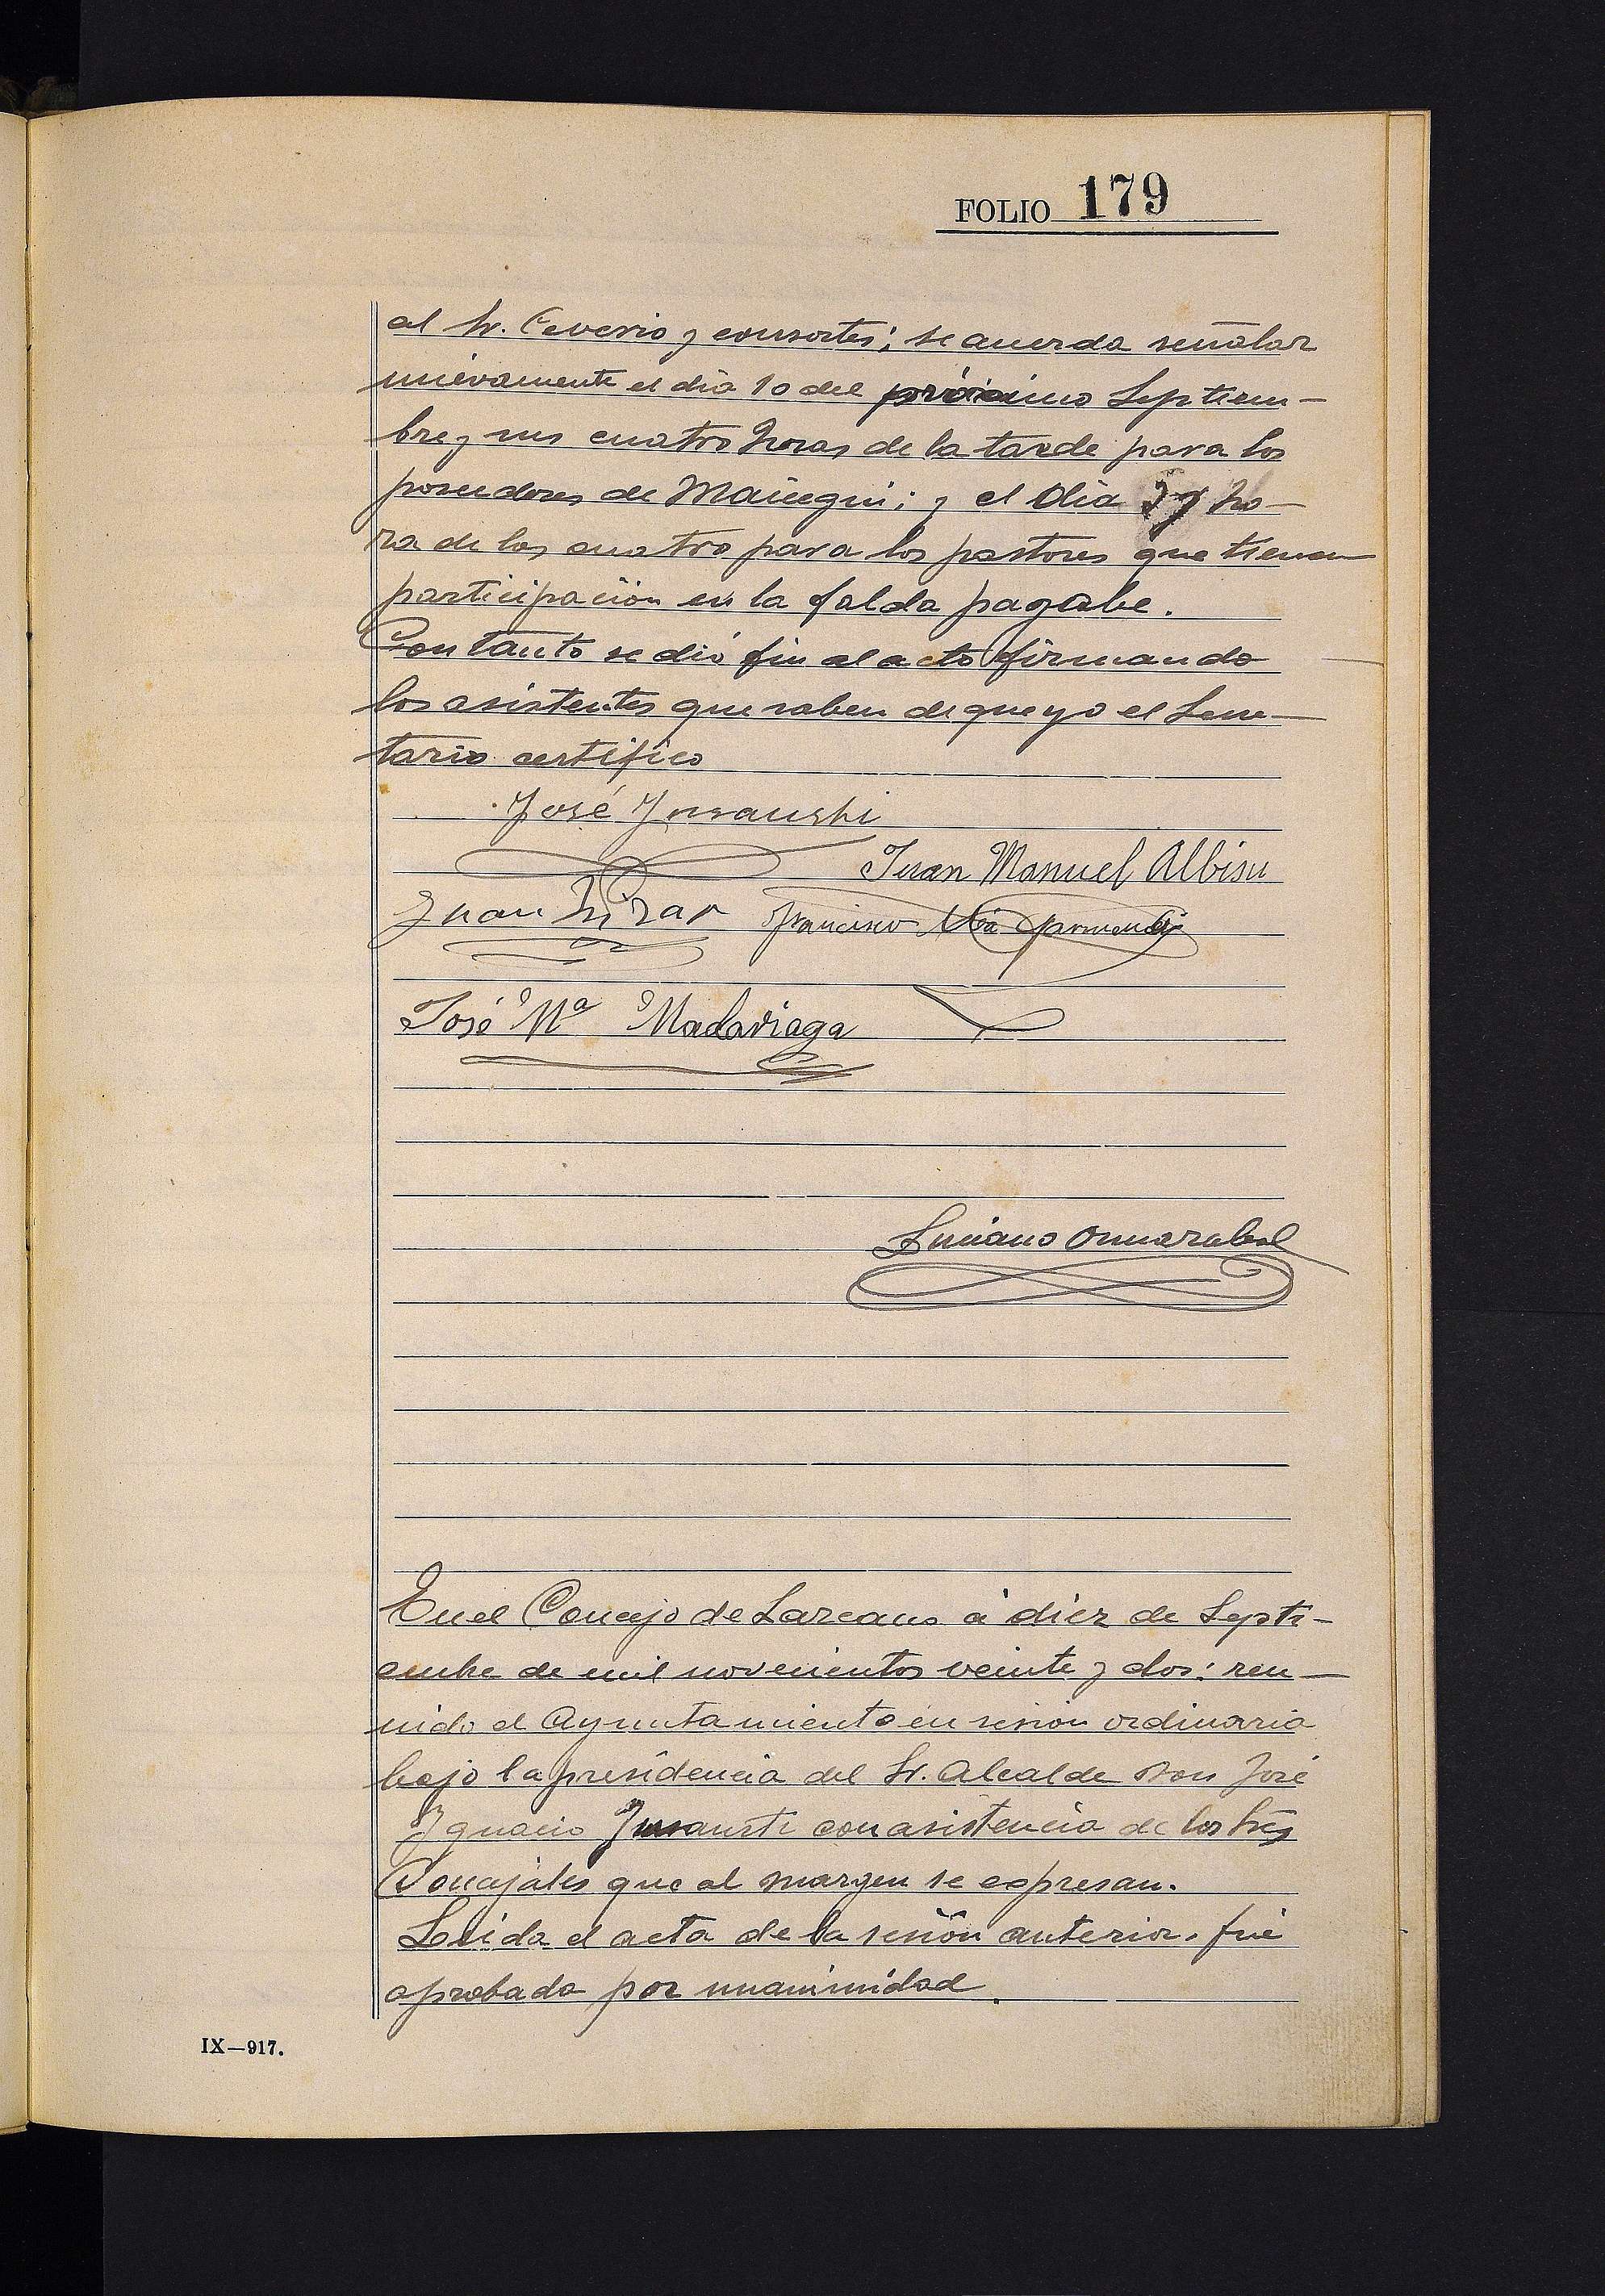 FOLIO 179
al Sr. Ceverio y consortes; se acuerda señalar
nuevamente el dia 10 del próximo Septiem-
bre y sus cuatro horas de la tarde para los
poseedores de; y el dia y ho-
ra de las cuatro para los pastores que tienen
participacion en la falda pagabe.
Con tanto se dió fin al acto firmando
los asistentes que saben de que yo el Secre-
tario certifico
José Ynsausti
Juan Manuel Albisu
Juan
Francisco Mª Garmendia
José Mª Madariaga
Luciano
En el Concejo de Lazcano á diez de Septi-
embre de mil novecientos veinte y dos: reu-
nido el Ayuntamiento en sesion ordinaria
bajo la presidencia del Sr. Alcalde Don José
Ygnacio Ynsausti con asistencia de los tres
Concejales que al margen se expresan.
Leida el acta de la sesión anterior, fué
aprobada por unanimidad.
IX—917.